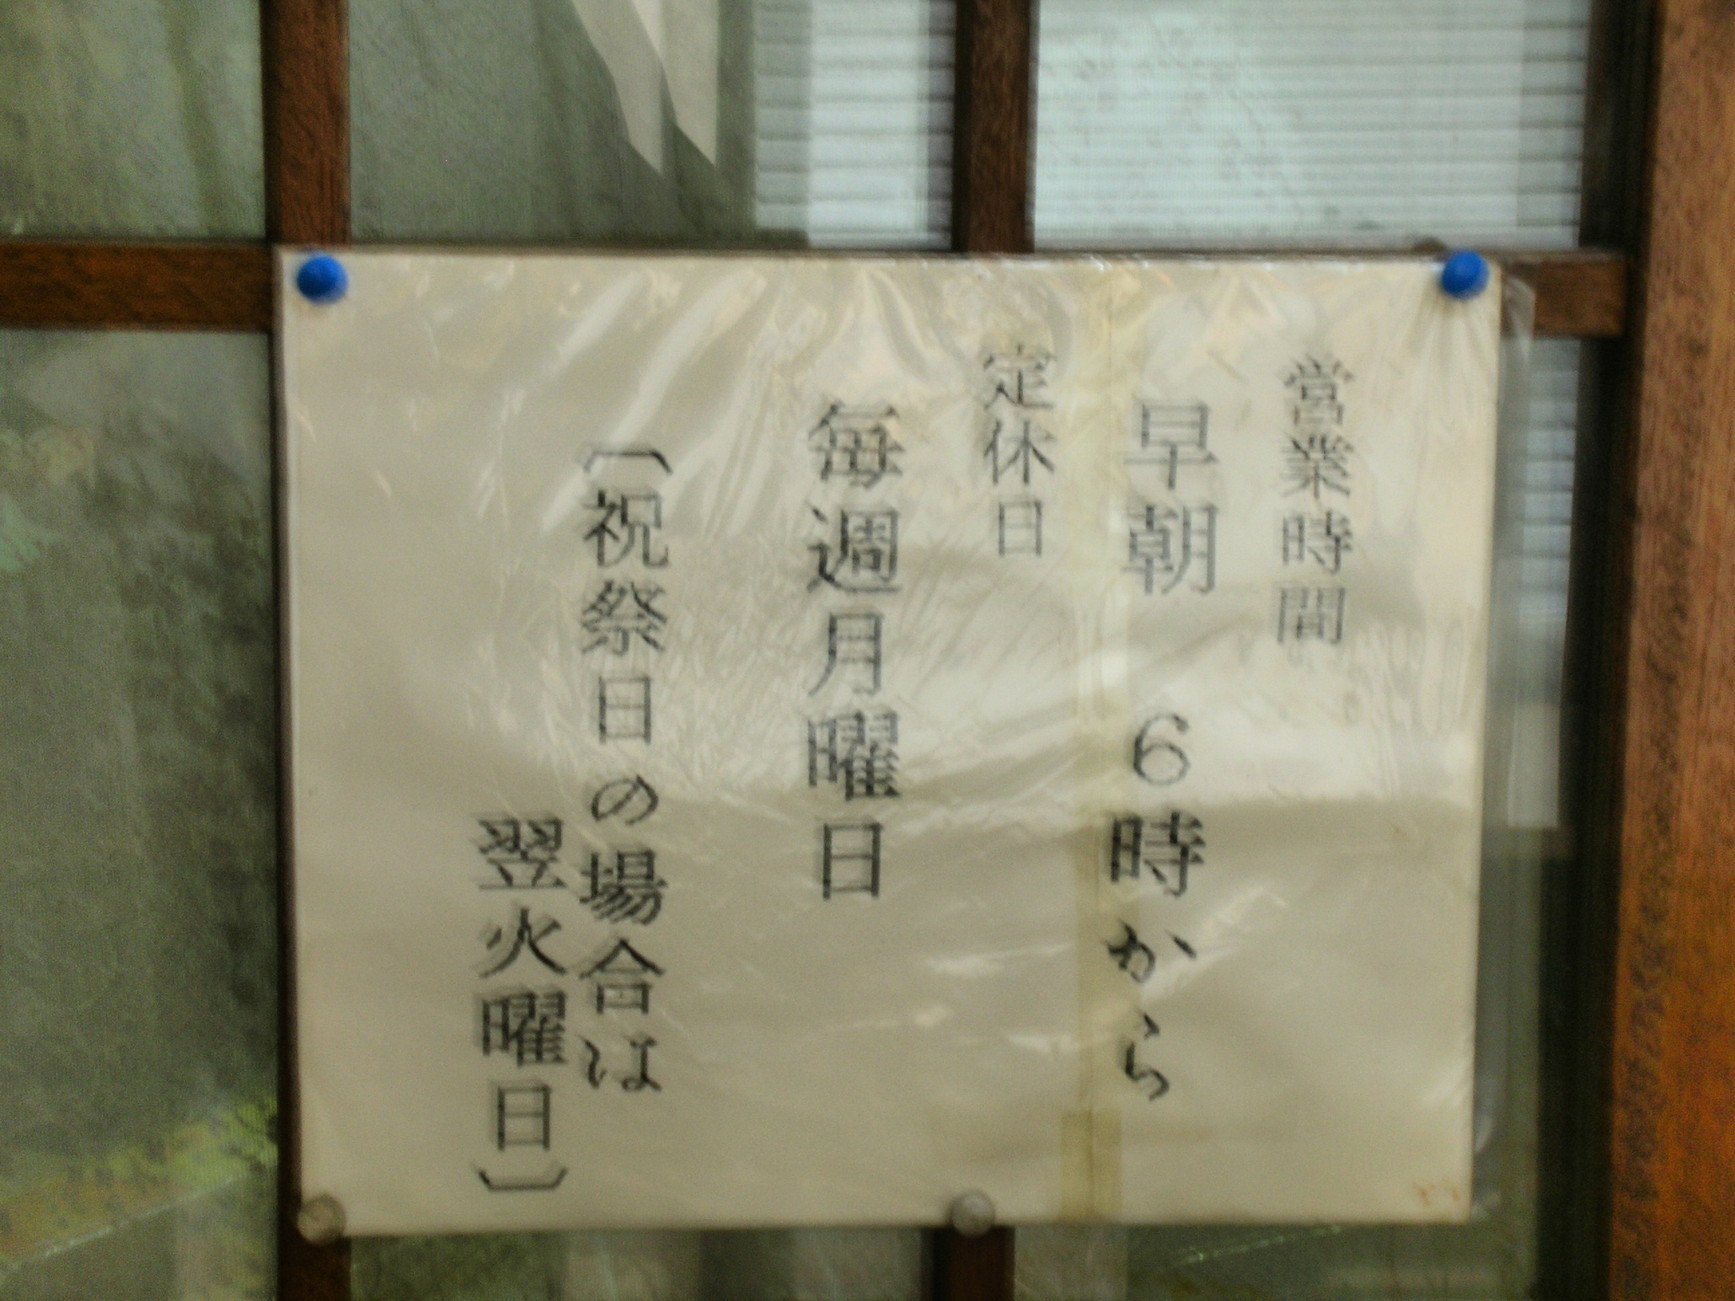 営業時間
早朝 6時から
定休日
毎週月曜日
〔祝祭日の場合は
翌火曜日〕